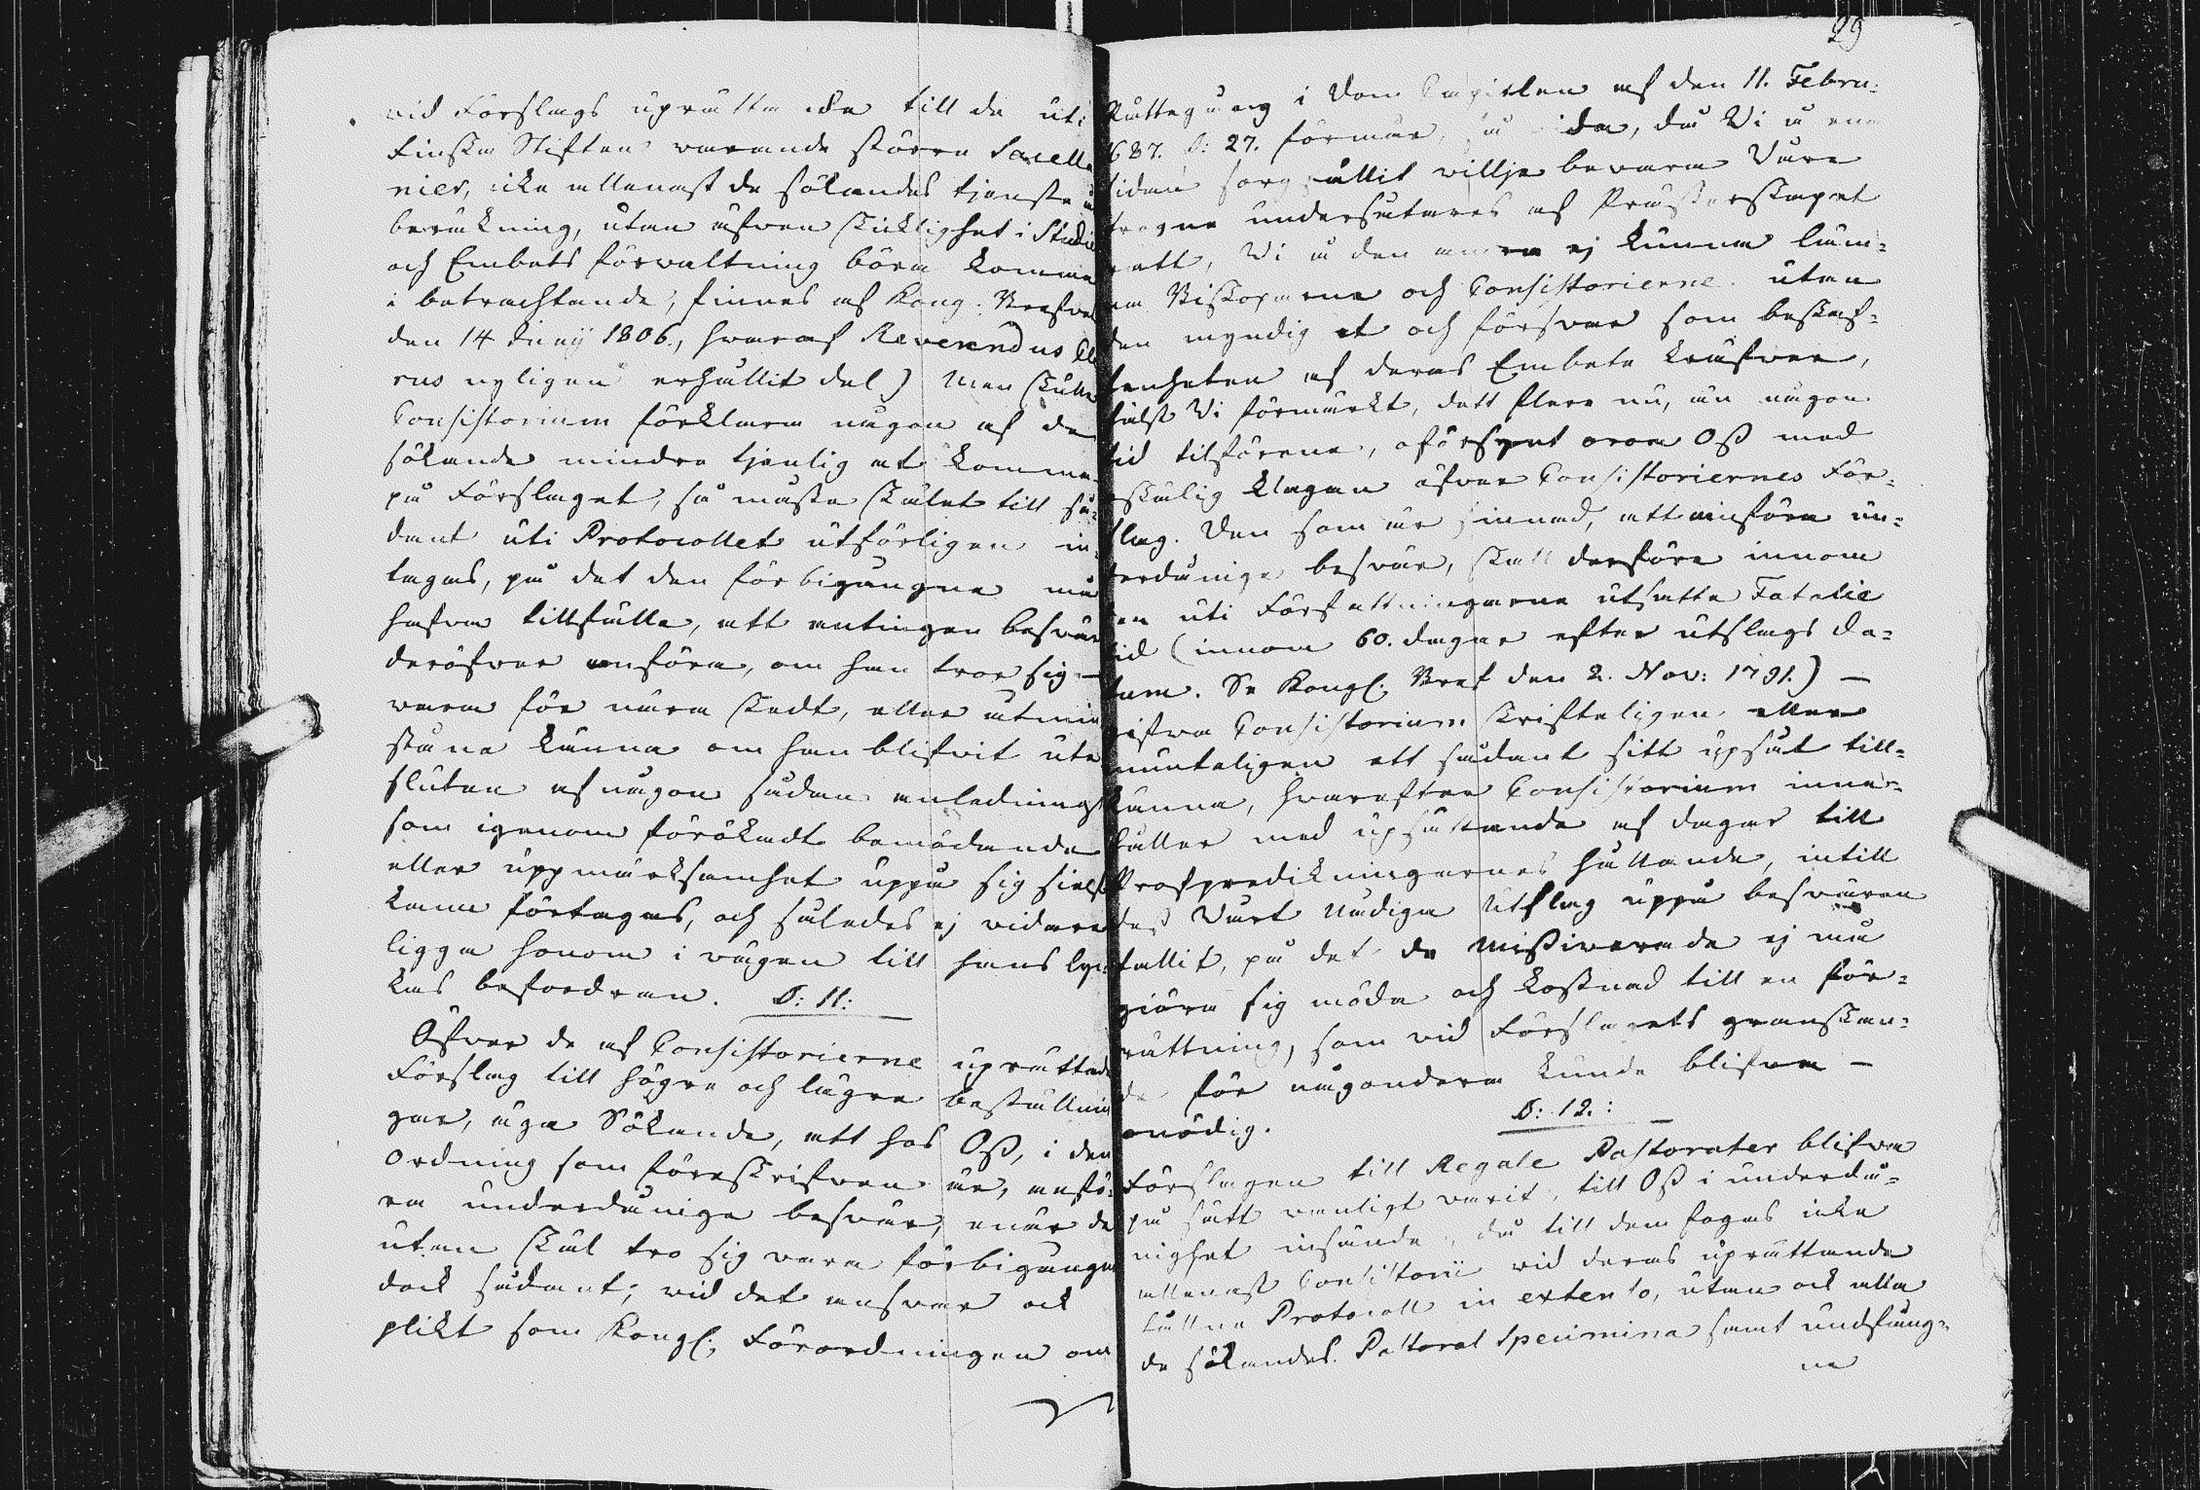 vid Förslags uprättande till de uti
Finska Stiften warande större Sacella
nier, icke allenast de sökandes tjenste å
beräkning, utan äfven skicklighet i Studier
och Embets förvaltning böra komma
i betrachtande, finnes af Kong. Brefvet
den 14 Junij 1806, hvaraf Reverendus Cle
rus nyligen erhållit del) Men skulle
Consistorium förklara någon af de
sökande mindre tjenlig at komma
på Förslaget, så måste skälet till så-
dant uti Protocollet utförligen in-
tagas, på det den förbigångne må
hafva tillfälle, att antingen besvär
deröfver anföra, om han tror sig —
vara för nära skedt, eller åtmin
stone känna om han blifvit ute
sluten af någon sådan anledning
som igenom förökadt bemödande
eller uppmärksamhet uppå sig sielf
kann förtagas, och således ej vidare
ligga honom i vägen till hans lyc-
kas befordran. §: 11:
Öfver de af Consistorierne uprättade
Förslag till högre och lägre beställnin
gar, äga Sökande, att hos Oß, i den
Ordning som föreskrifven är, anfö-
ra underdånige besvär, enär de
utan skäl tro sig vara förbigångne
dock sådant, vid det answar och
plikt som Kongl: Förordningen om
29
Rättegång i Dom Capitlen af den 11. Febru-
1687. §: 27. förmår, då Vi å ena
sidan sorgfälligt willje bevara Våre
trogne undersåtares af Prästerskapet
rätt, Vi å den andra ej kunna läm-
na Biskoparne och Consistorierne utan
den myndighet och försvar som beskaf-
fenheten af deras Embete kräfver,
hälst Vi förmärkt, datt flere nu, än någon
tid tilförene, oförsynt oroa Oß med
oskälig klagan öfver Consistoriernes För-
slag. Den som är sinnad, att anföra un-
derdånige besvär, skall derföre innom
den uti Författningarne utsatte Fatalie
tid (innom 60. dagar efter utslags da-
tum. Se Kongl: Bref den 2. Nov: 1791.) —
gifva Consistorium skrifteligen eller
munteligen ett sådant sitt upsåt till-
känna, hvarefter Consistorium inne-
håller med upsättande af dagar till
Profpredikningarnes hållande, intill
deß Vårt Nådiga Utslag uppå besvären
fallit, på det de Mißiverade ej må
giöra sig möda och kostnad till en för-
rättning, som vid Förslagets granskan-
de för någondera kunde blifva —
onödig.
§: 12.:
Förslagen till Regale Pastorater blifva
på sätt wanligt varit, till Oß i underdå-
nighet insände, då till dem fogas icke
allenast Consistorii vid deras uprättande
hållne Protocoll in extenso, utan ock alla
de sökandes Pastoral Specimina samt undfång-
ne